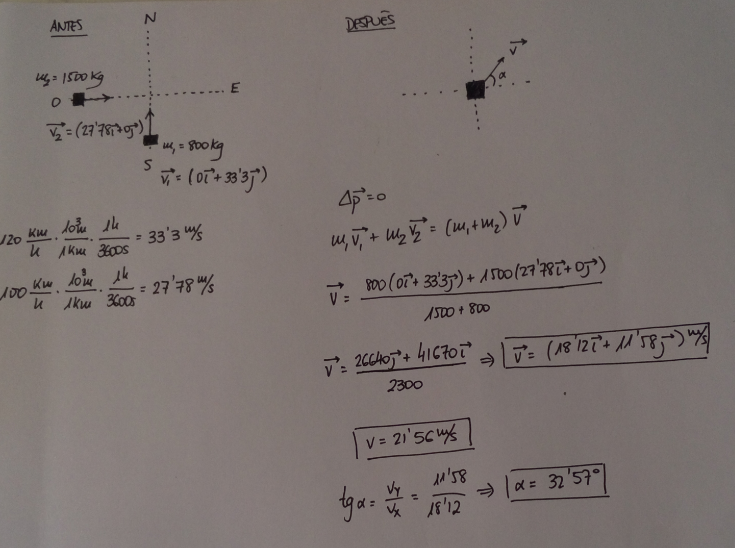 ANTES
N
m₂ = 1500 kg
O
E
v₂⃗ = (27'78i⃗ + 0j⃗)
m₁ = 800 kg
S
v₁⃗ = (0i⃗ + 33'3j⃗)
120 km/h · 10³m/1km · 1h/3600s = 33'3 m/s
100 km/h · 10³m/1km · 1h/3600s = 27'78 m/s
DESPUÉS
v⃗
α
Δp⃗ = 0
m₁v₁⃗ + m₂v₂⃗ = (m₁+m₂) v⃗
v⃗ = 800(0i⃗ + 33'3j⃗) + 1500(27'78i⃗ + 0j⃗) / 1500 + 800
v⃗ = 26640j⃗ + 41670i⃗ / 2300 ⇒ v⃗ = (18'12i⃗ + 11'58j⃗) m/s
v = 21'56 m/s
tg α = vy/vx = 11'58/18'12 ⇒ α = 32'57°